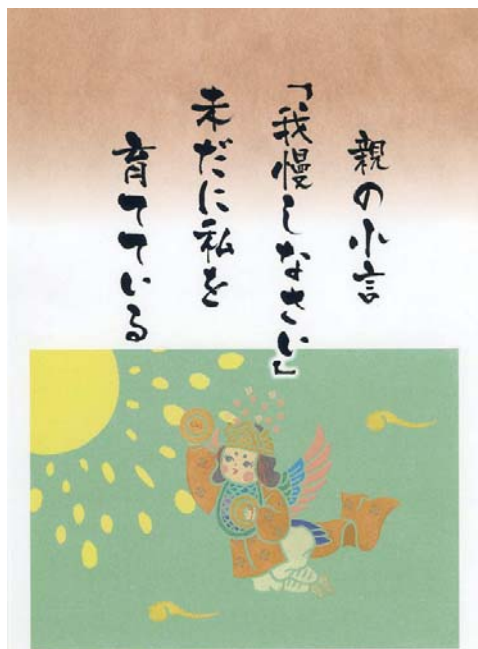 親の小言
「我慢しなさい」
未だに私を
育てている